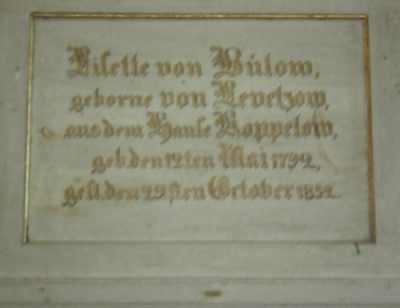 Lisette von Bülow,
geborne von Levetzow,
aus dem Hause Koppelow,
geb. den 12ten Mai 1792,
gest. den 29sten October 1852.